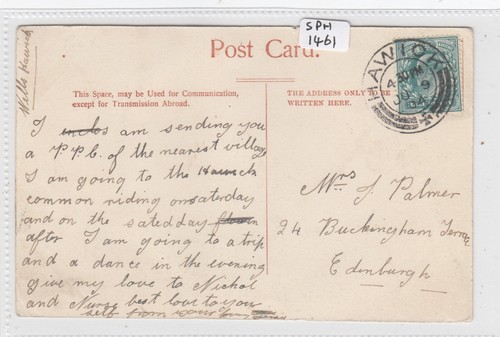 SPH
1461
Post Card.
Wells Hawick
HAWICK
This Space, may be Used for Communication,
except for Transmission Abroad.
THE ADDRESS ONLY TO BE
WRITTEN HERE.
I am sending you
a P.P.C. of the nearest village
I am going to the
common riding on saterday
and on the
after I am going to a trip
and a dance in the evening
give my love to Nichol
and Nurse best love to you
self from your
Mrs J. Palmer
24 Buckingham Terrace
Edinburgh